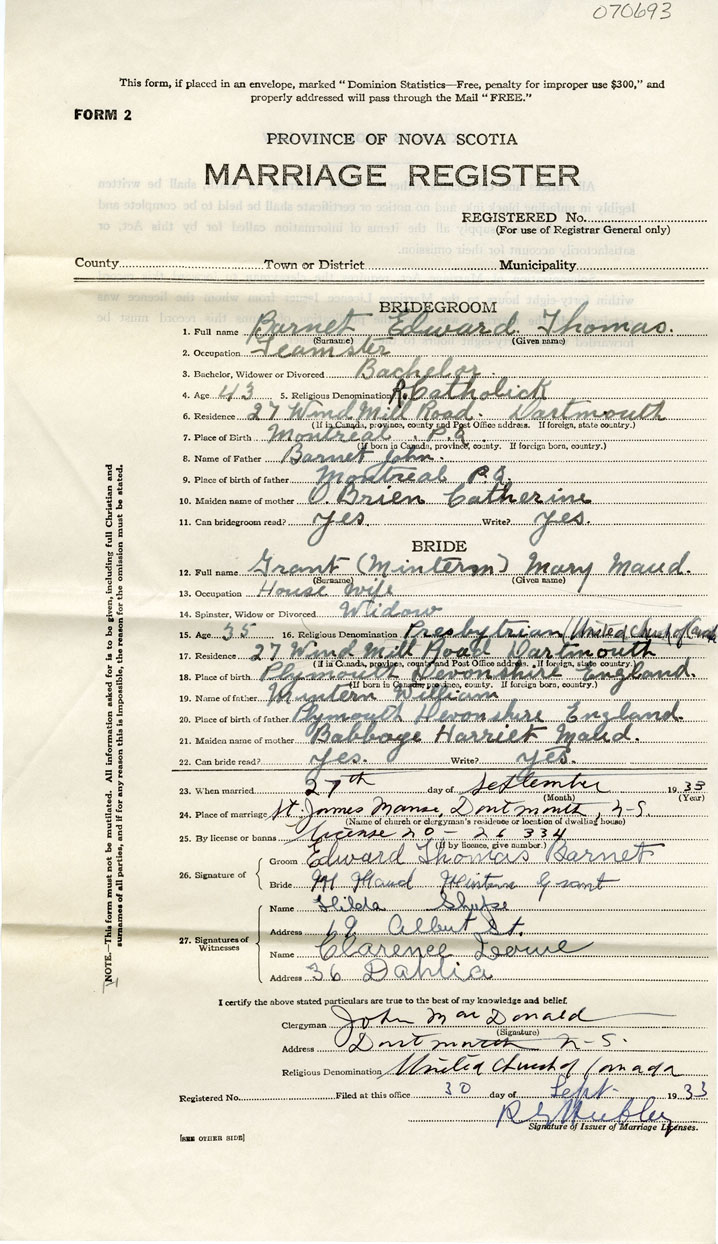 070693
This form, if placed in an envelope, marked "Dominion Statistics—Free, penalty for improper use $300," and
properly addressed will pass through the Mail "FREE."
FORM 2
PROVINCE OF NOVA SCOTIA
MARRIAGE REGISTER
REGISTERED No.
(For use of Registrar General only)
County Town or District Municipality
BRIDEGROOM
1. Full name Barnet Edward Thomas.
(Surname) (Given name)
2. Occupation Teamster
3. Bachelor, Widower or Divorced Bachelor.
4. Age 43 5. Religious Denomination R. Catholick
6. Residence 27 Wind Mill Road. Dartmouth
(If in Canada, province, county and Post Office address. If foreign, state country.)
7. Place of Birth Montreal P.Q.
(If born in Canada, province, county. If foreign born, country.)
8. Name of Father Barnet John.
9. Place of birth of father Montreal P.Q.
10. Maiden name of mother O.Brien Catherine
11. Can bridegroom read? yes. Write? yes.
BRIDE
12. Full name Grant (Mintern) Mary Maud.
(Surname) (Given name)
13. Occupation House Wife
14. Spinster, Widow or Divorced Widow
15. Age 35 16. Religious Denomination Presbytrian (United Church of Canada
17. Residence 27 Wind Mill Road Dartmouth
(If in Canada, province, county and Post Office address. If foreign, state country.)
18. Place of birth Plymouth Devonshire England.
(If born in Canada, province, county. If foreign born, country.)
19. Name of father Mintern William
20. Place of birth of father Plymouth Devonshire England.
21. Maiden name of mother Babbage Harriet Maud.
22. Can bride read? yes. Write? yes.
23. When married 27th day of September 1933
(Month) (Year)
24. Place of marriage St. James Manse, Dartmouth, N-S.
(Name of church or clergyman's residence or location of dwelling house)
25. By license or banns License 20 - 26 334
(If by licence, give number.)
26. Signature of Groom Edward Thomas Barnet
Bride M Maud Mintern Grant
27. Signatures of Witnesses
Name Hilda
Address 69 Albert St.
Name Clarence
Address 36 Dahlia
I certify the above stated particulars are true to the best of my knowledge and belief.
Clergyman John MacDonald
(Signature)
Address Dartmouth N-S.
Religious Denomination United Church of Canada
Registered No. Filed at this office 30 day of Sept. 1933
Signature of Issuer of Marriage Licenses.
[SEE OTHER SIDE]
NOTE.—This form must not be mutilated. All information asked for is to be given, including full Christian and
surnames of all parties, and if for any reason this is impossible, the reason for the omission must be stated.